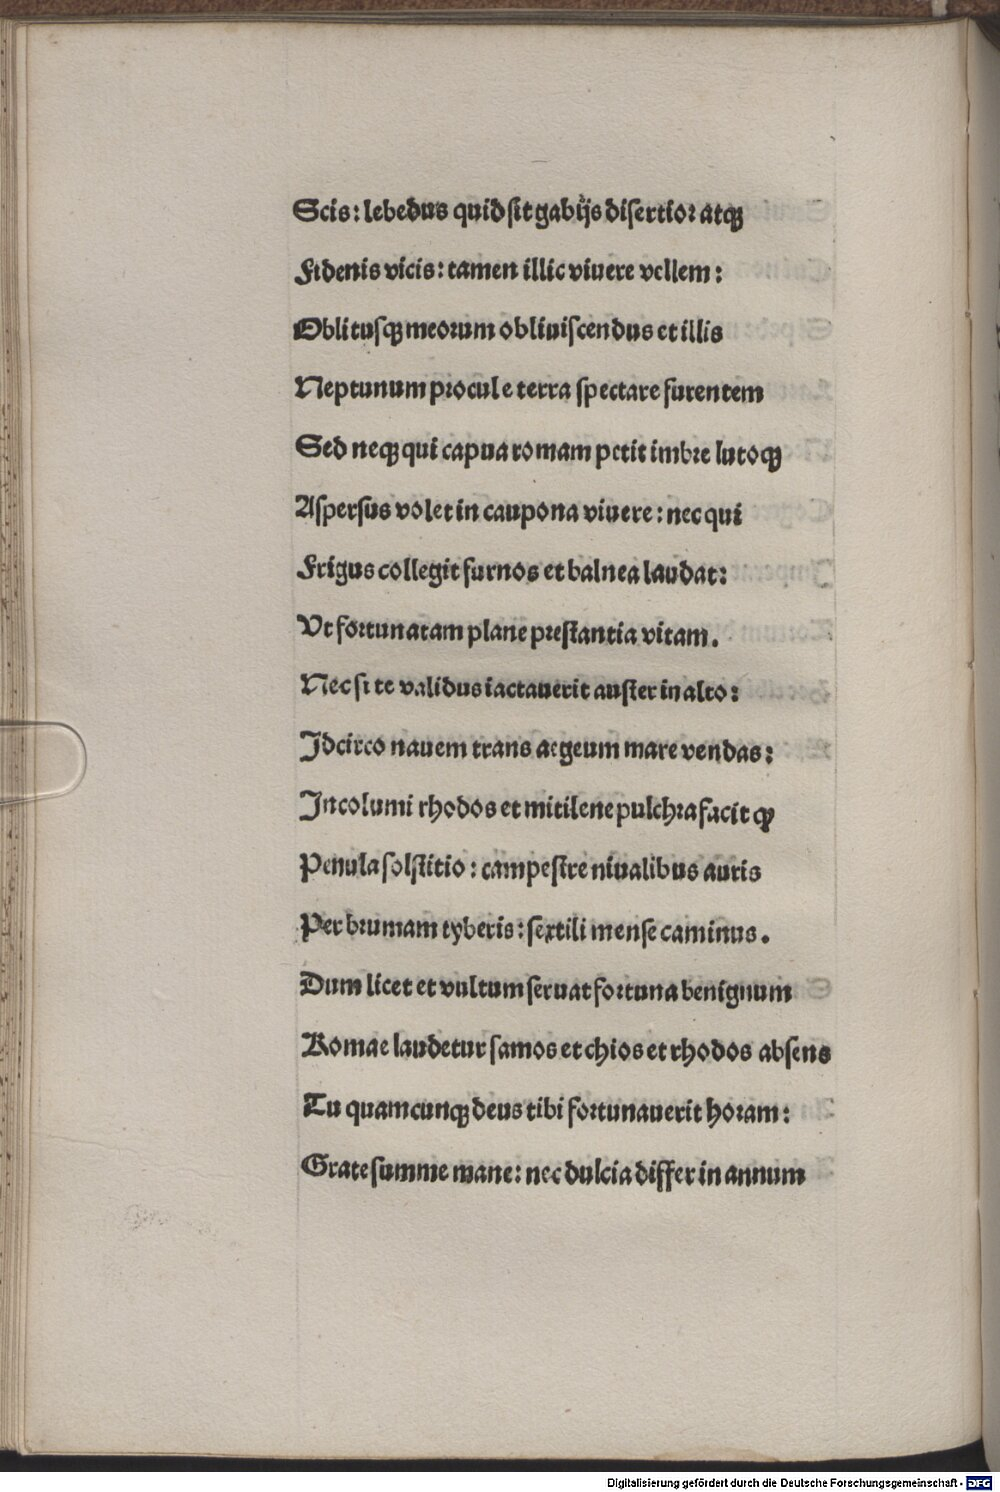 Scis: lebedus quid sit gabijs disertior atqꝫ
Fidenis vicis: tamen illic viuere vellem:
Oblitusqꝫ meorum obliuiscendus et illis
Neptunum procul e terra spectare furentem
Sed neqꝫ qui capua romam petit imbre lutoqꝫ
Aspersus volet in caupona viuere: nec qui
Frigus collegit furnos et balnea laudat:
Vt fortunatam plane prestantia vitam.
Nec si te validus iactauerit auster in alto:
Idcirco nauem trans aegeum mare vendas:
Incolumi rhodos et mitilene pulchra facit qꝫ
Penula solstitio: campestre niualibus auris
Per brumam tyberis: sextili mense caminus.
Dum licet et vultum seruat fortuna benignum
Romae laudetur samos et chios et rhodos absens
Tu quamcunqꝫ deus tibi fortunauerit horam:
Grate summe mane: nec dulcia differ in annum
Digitalisierung gefördert durch die Deutsche Forschungsgemeinschaft - DFG